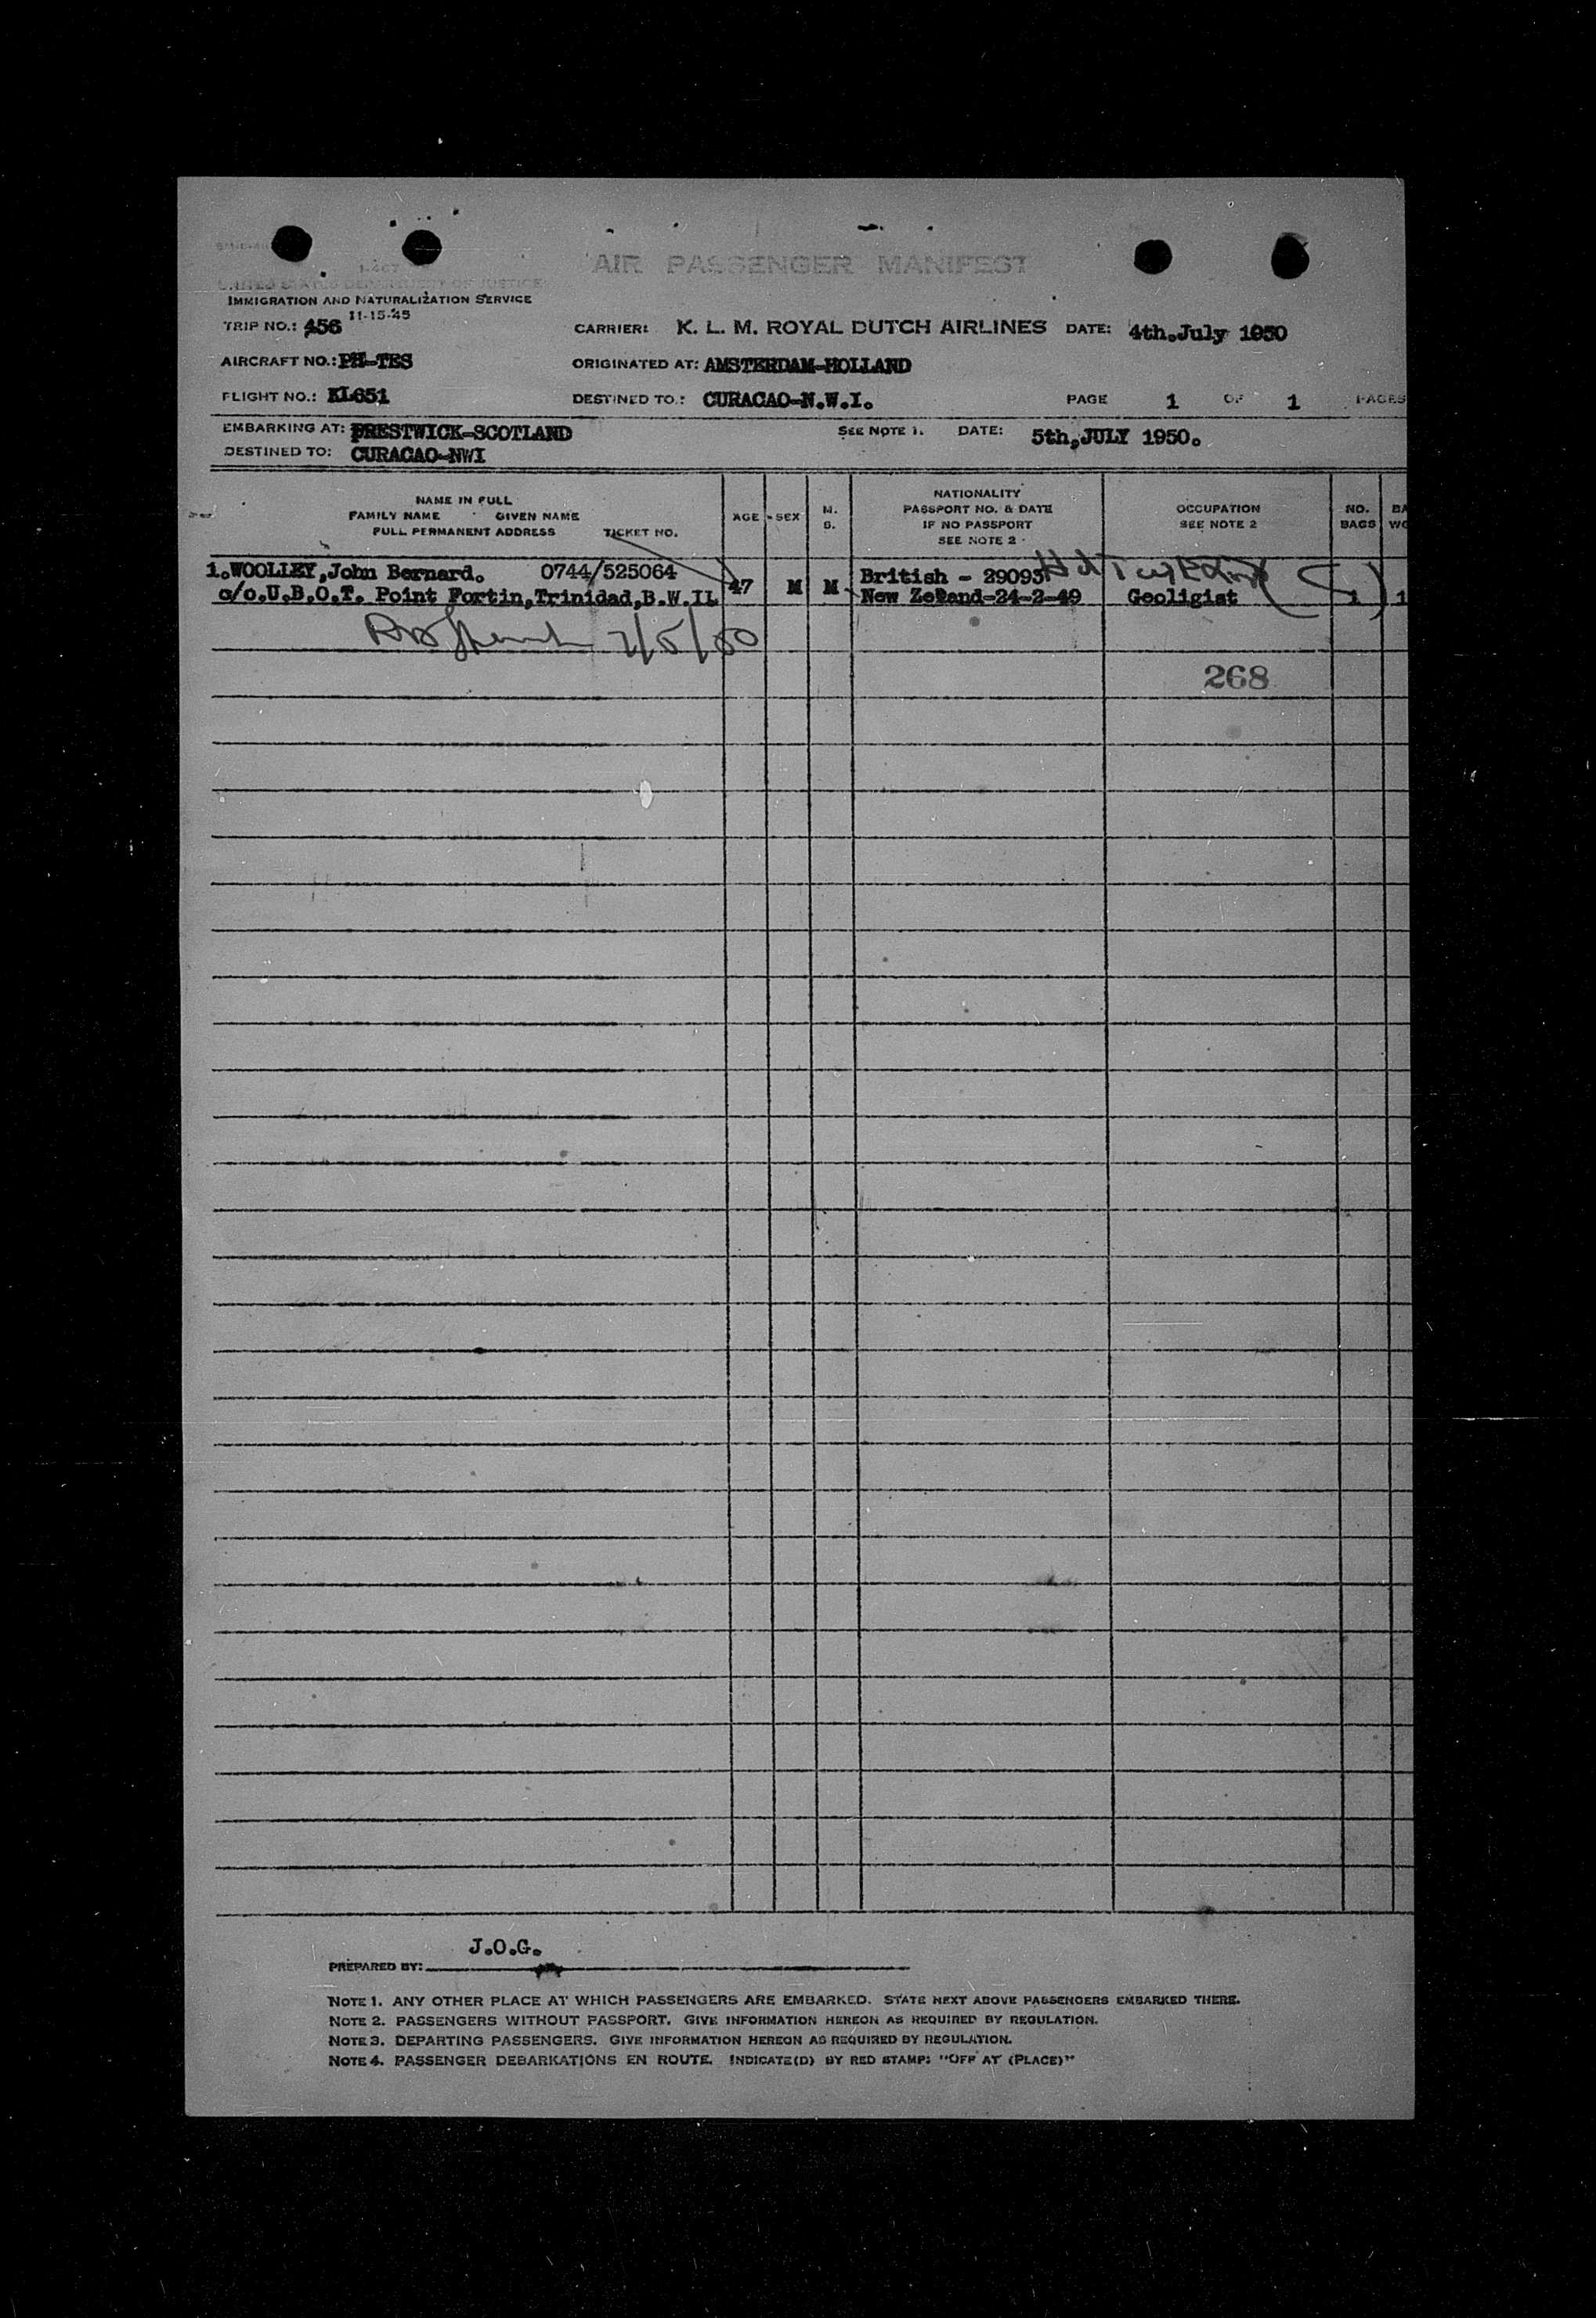 I-407
AIR PASSENGER MANIFEST
UNITED STATES DEPARTMENT OF JUSTICE
IMMIGRATION AND NATURALIZATION SERVICE
11-15-45
TRIP NO.: 456 CARRIER: K. L. M. ROYAL DUTCH AIRLINES DATE: 4th.July 1950
AIRCRAFT NO.: PH-TES ORIGINATED AT: AMSTERDAM-HOLLAND
FLIGHT NO.: KL651 DESTINED TO.: CURACAO-N.W.I. PAGE 1 OF 1 PAGES
EMBARKING AT: PRESTWICK-SCOTLAND SEE NOTE 1. DATE: 5th,JULY 1950.
DESTINED TO: CURACAO-NWI
NAME IN FULL
FAMILY NAME GIVEN NAME
FULL PERMANENT ADDRESS TICKET NO.
AGE SEX M. S.
NATIONALITY
PASSPORT NO. & DATE
IF NO PASSPORT
SEE NOTE 2
OCCUPATION
SEE NOTE 2
NO.
BAGS
BA
WG
1.WOOLLEY,John Bernard. 0744/525064 47 M M British - 29093
c/o.U.B.O.T. Point Fortin,Trinidad,B.W.I New Zealand-24-2-49 Geoligist 1 1
7/5/50
268
J.O.G.
PREPARED BY:
NOTE 1. ANY OTHER PLACE AT WHICH PASSENGERS ARE EMBARKED. STATE NEXT ABOVE PASSENGERS EMBARKED THERE.
NOTE 2. PASSENGERS WITHOUT PASSPORT. GIVE INFORMATION HEREON AS REQUIRED BY REGULATION.
NOTE 3. DEPARTING PASSENGERS. GIVE INFORMATION HEREON AS REQUIRED BY REGULATION.
NOTE 4. PASSENGER DEBARKATIONS EN ROUTE. INDICATE(D) BY RED STAMP: "OFF AT (PLACE)"